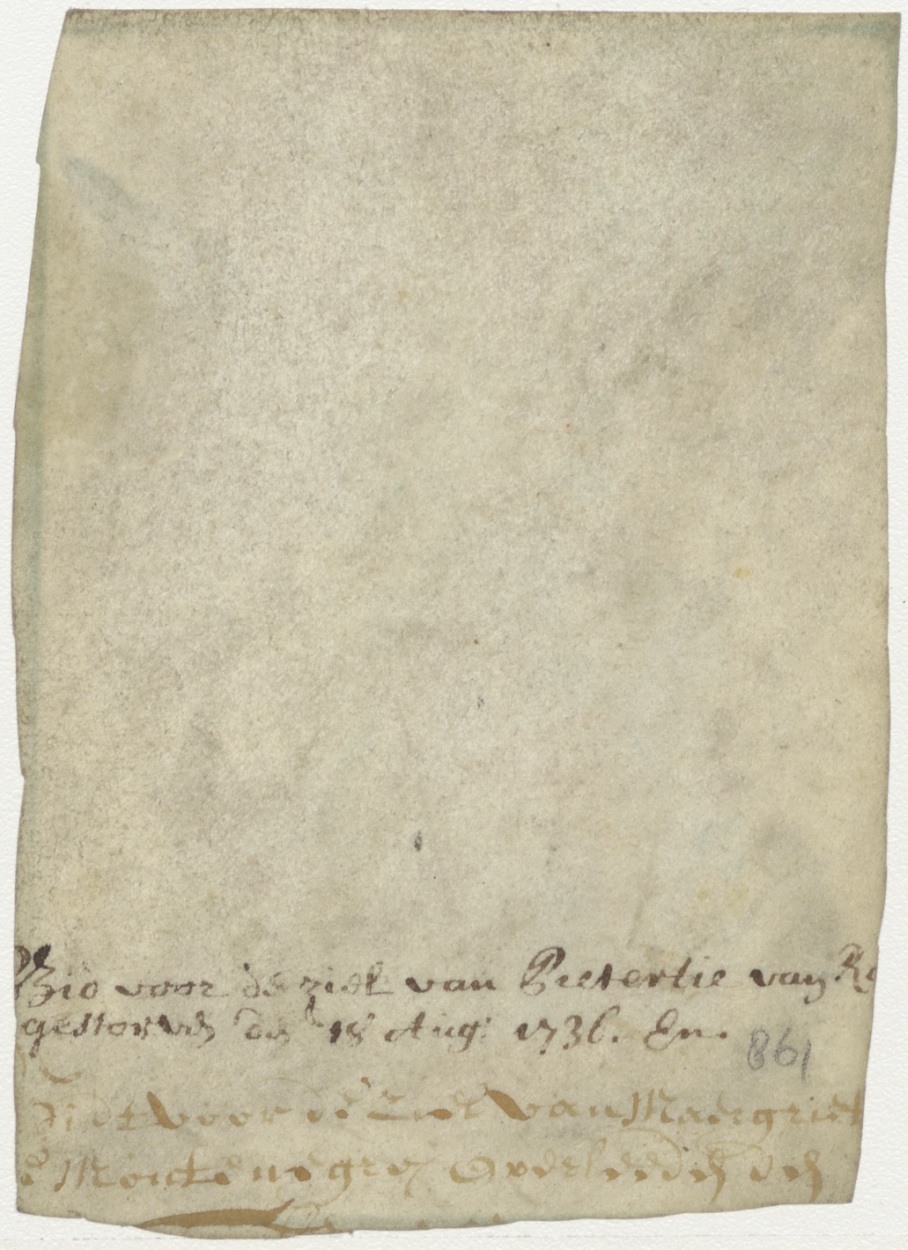 Bid voor de ziel van Pietertie van
gestorven den 18 Aug: 1736. En.
861
Bidt voor de Ziel van Maergriet
Montenegro Overleeden den